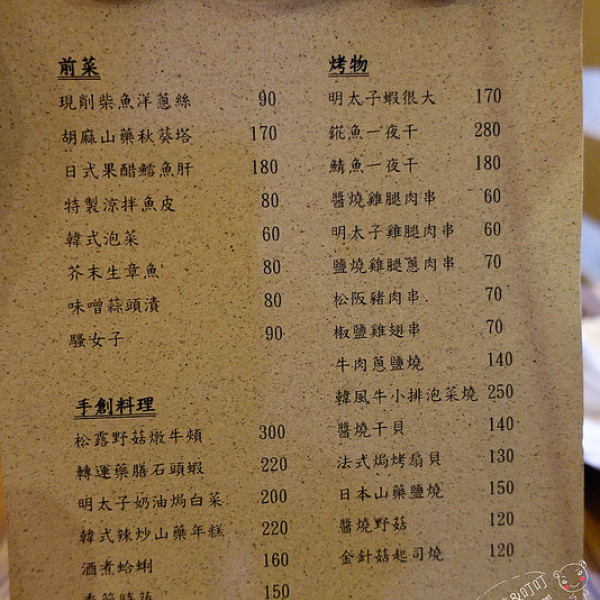 前菜
現削柴魚洋蔥絲 90
胡麻山藥秋葵塔 170
日式果醋鱈魚肝 180
特製涼拌魚皮 80
韓式泡菜 60
芥末生章魚 80
味噌蒜頭漬 80
騷女子 90
手創料理
松露野菇燉牛頰 300
轉運藥膳石頭蝦 220
明太子奶油焗白菜 200
韓式辣炒山藥年糕 220
酒煮蛤蜊 160
150
烤物
明太子蝦很大 170
鯤魚一夜干 280
鯖魚一夜干 180
醬燒雞腿肉串 60
明太子雞腿肉串 60
鹽燒雞腿蔥肉串 70
松阪豬肉串 70
椒鹽雞翅串 70
牛肉蔥鹽燒 140
韓風牛小排泡菜燒 250
醬燒干貝 140
法式焗烤扇貝 130
日本山藥鹽燒 150
醬燒野菇 120
金針菇起司燒 120